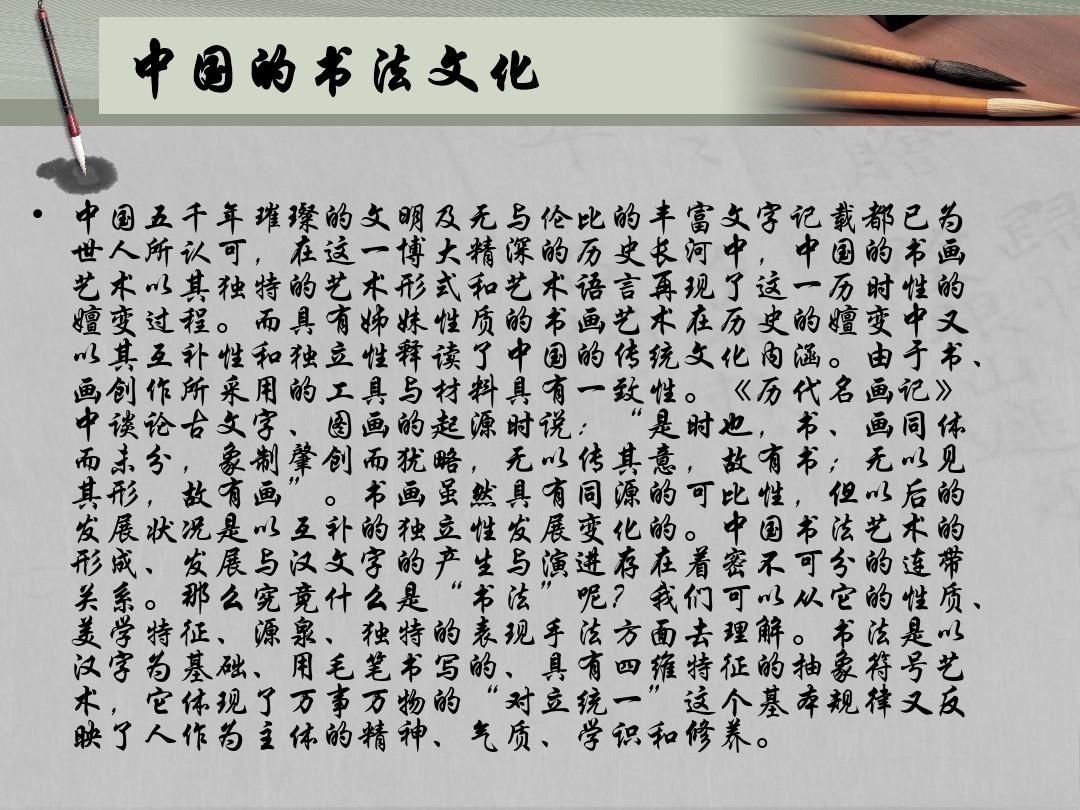 中国的书法文化
• 中国五千年璀璨的文明及无与伦比的丰富文字记载都已为
世人所认可，在这一博大精深的历史长河中，中国的书画
艺术以其独特的艺术形式和艺术语言再现了这一历时性的
嬗变过程。而具有姊妹性质的书画艺术在历史的嬗变中又
以其互补性和独立性释读了中国的传统文化内涵。由于书、
画创作所采用的工具与材料具有一致性。《历代名画记》
中谈论古文字、图画的起源时说：“是时也，书、画同体
而未分，象制肇创而犹略，无以传其意，故有书；无以见
其形，故有画”。书画虽然具有同源的可比性，但以后的
发展状况是以互补的独立性发展变化的。中国书法艺术的
形成、发展与汉文字的产生与演进存在着密不可分的连带
关系。那么究竟什么是“书法”呢？我们可以从它的性质、
美学特征、源泉、独特的表现手法方面去理解。书法是以
汉字为基础、用毛笔书写的、具有四维特征的抽象符号艺
术，它体现了万事万物的“对立统一”这个基本规律又反
映了人作为主体的精神、气质、学识和修养。